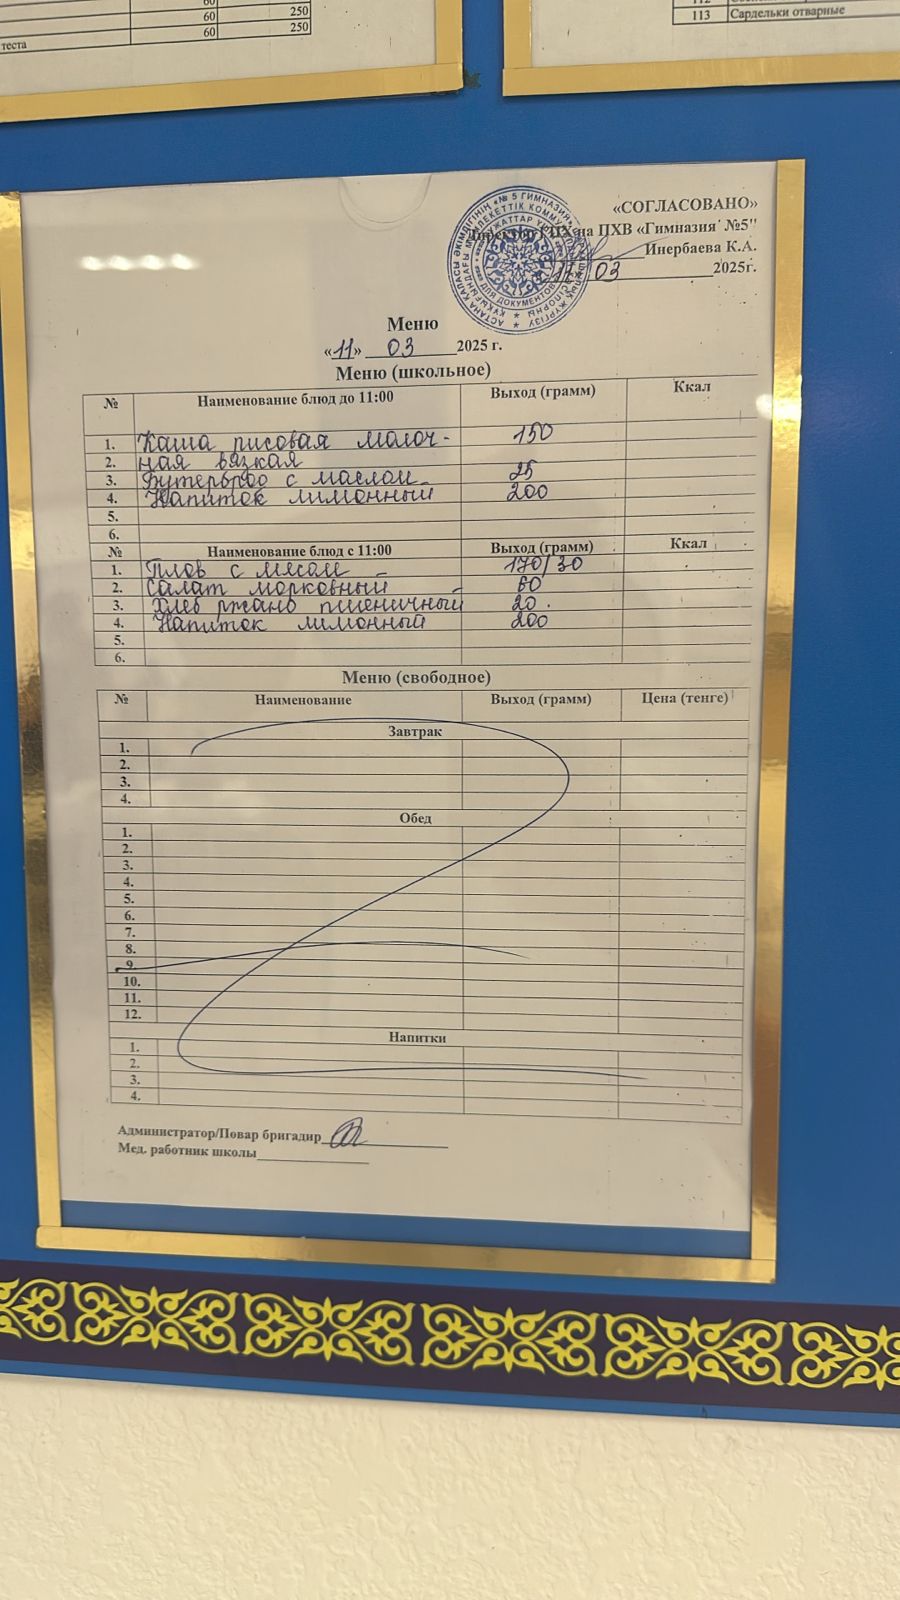 60
60 250
теста 60 250
113 Сардельки отварные
«СОГЛАСОВАНО»
на ПХВ «Гимназия №5"
Инербаева К.А.
11 03 2025г.
Меню
«11» 03 2025 г.
Меню (школьное)
№ Наименование блюд до 11:00 Выход (грамм) Ккал
1. Каша рисовая молоч- 150
2. ная вязкая
3. Бутерброд с маслом 25
4. Напиток лимонный 200
5.
6.
№ Наименование блюд с 11:00 Выход (грамм) Ккал
1. Плов с мясом 170/30
2. Салат морковный 60
3. Хлеб ржано пшеничный 20.
4. Напиток лимонный 200
5.
6.
Меню (свободное)
№ Наименование Выход (грамм) Цена (тенге)
Завтрак
1.
2.
3.
4.
Обед
1.
2.
3.
4.
5.
6.
7.
8.
9.
10.
11.
12.
Напитки
1.
2.
3.
4.
Администратор/Повар бригадир
Мед. работник школы